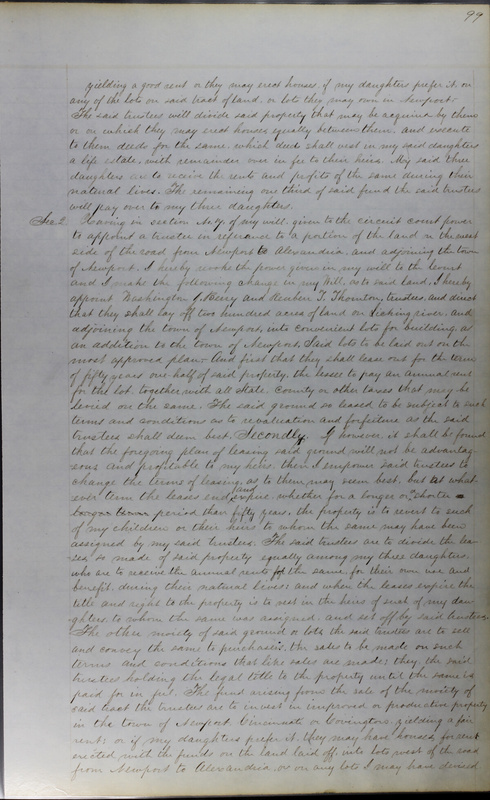 99
yielding a good rent or they may erect houses, if my daughters prefer it on
any of the lots on said tract of land, or lots they may own in Newport.
The said trustees will divide said property that may be acquired by them
or on which they may erect houses equally between them, and execute
to them deeds for the same, which deeds shall vest in my said daughters
a life estate, with remainder over in fee to their heirs. My said three
daughters are to receive the rents and profits of the same during their
natural lives. The remaining one third of said fund the said trustees
will pay over to my three daughters.
Sec 2. Having in section No 7, of my will, given to the circuit court power
to appoint a trustee in reference to a portion of the land on the west
side of the road from Newport to Alexandria, and adjoining the town
of Newport, I hereby revoke the power given in my will to the court
and I make the following change in my Will, as to said land, I hereby
appoint Washington J. Berry and Reuben T. Thornton, trustees, and direct
that they shall lay off two hundred acres of land on Licking river, and
adjoining the town of Newport, into convenient lots for building, as
an addition to the town of Newport. Said lots to be laid out on the
most approved plan. And first that they shall lease out for the term
of fifty years one half of said property, the lessee to pay an annual rent
for the lot, together with all State, County or other taxes that may be
levied on the same. The said ground so leased to be subject to such
terms and conditions as to revaluation and forfeiture as the said
trustees shall deem best. Secondly. If however it shall be found
that the foregoing plan of leasing said ground will not be advantag-
eous and profitable to my heirs, then I empower said trustees to
change the terms of leasing, as to them may seem best, but at what-
ever term the leases end and expire, whether for a longer or shorter
period than fifty years, the property is to revert to such
of my children or their heirs to whom the same may have been
assigned by my said trustees. The said trustees are to divide the lea-
ses so made of said property equally among my three daughters,
who are to receive the annual rents of the same, for their own use and
benefit, during their natural lives; and when the leases expire the
title and right to the property is to vest in the heirs of such of my dau-
ghters, to whom the same was assigned, and set off by said trustees.
The other moiety of said ground or lots the said trustees are to sell
and convey the same to purchasers; the sales to be made on such
terms and conditions that like sales are made; they, the said
trustees holding the legal title to the property until the same is
paid for in full. The fund arising from the sale of the moiety of
said tract the trustees are to invest in improved or productive property
in the town of Newport, Cincinnati or Covington, yielding a fair
rent; or if my daughters prefer it, they may have houses, for rent
erected with the funds on the land laid off, into lots west of the road
from Newport to Alexandria, or on any lots I may have devised